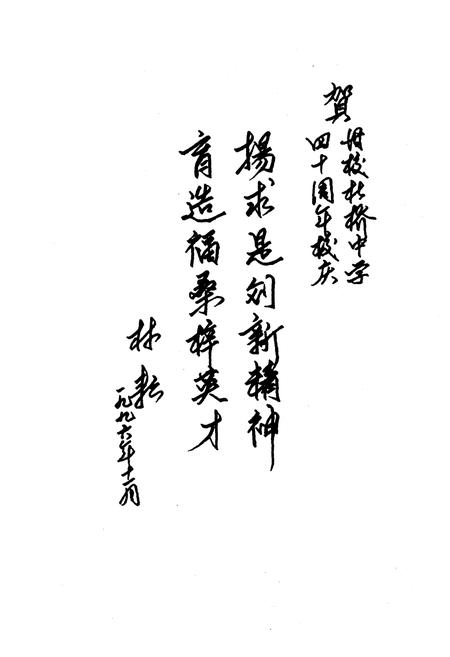 賀母校杜桥中学
四十周年校庆
揚求是创新精神
育造福桑梓英才
林耘
一九九六年十一月